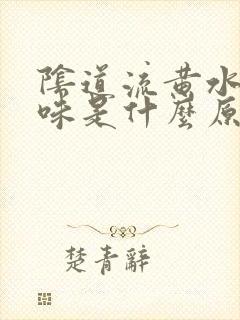 陰道流黃水
味是什麼原
楚青辭